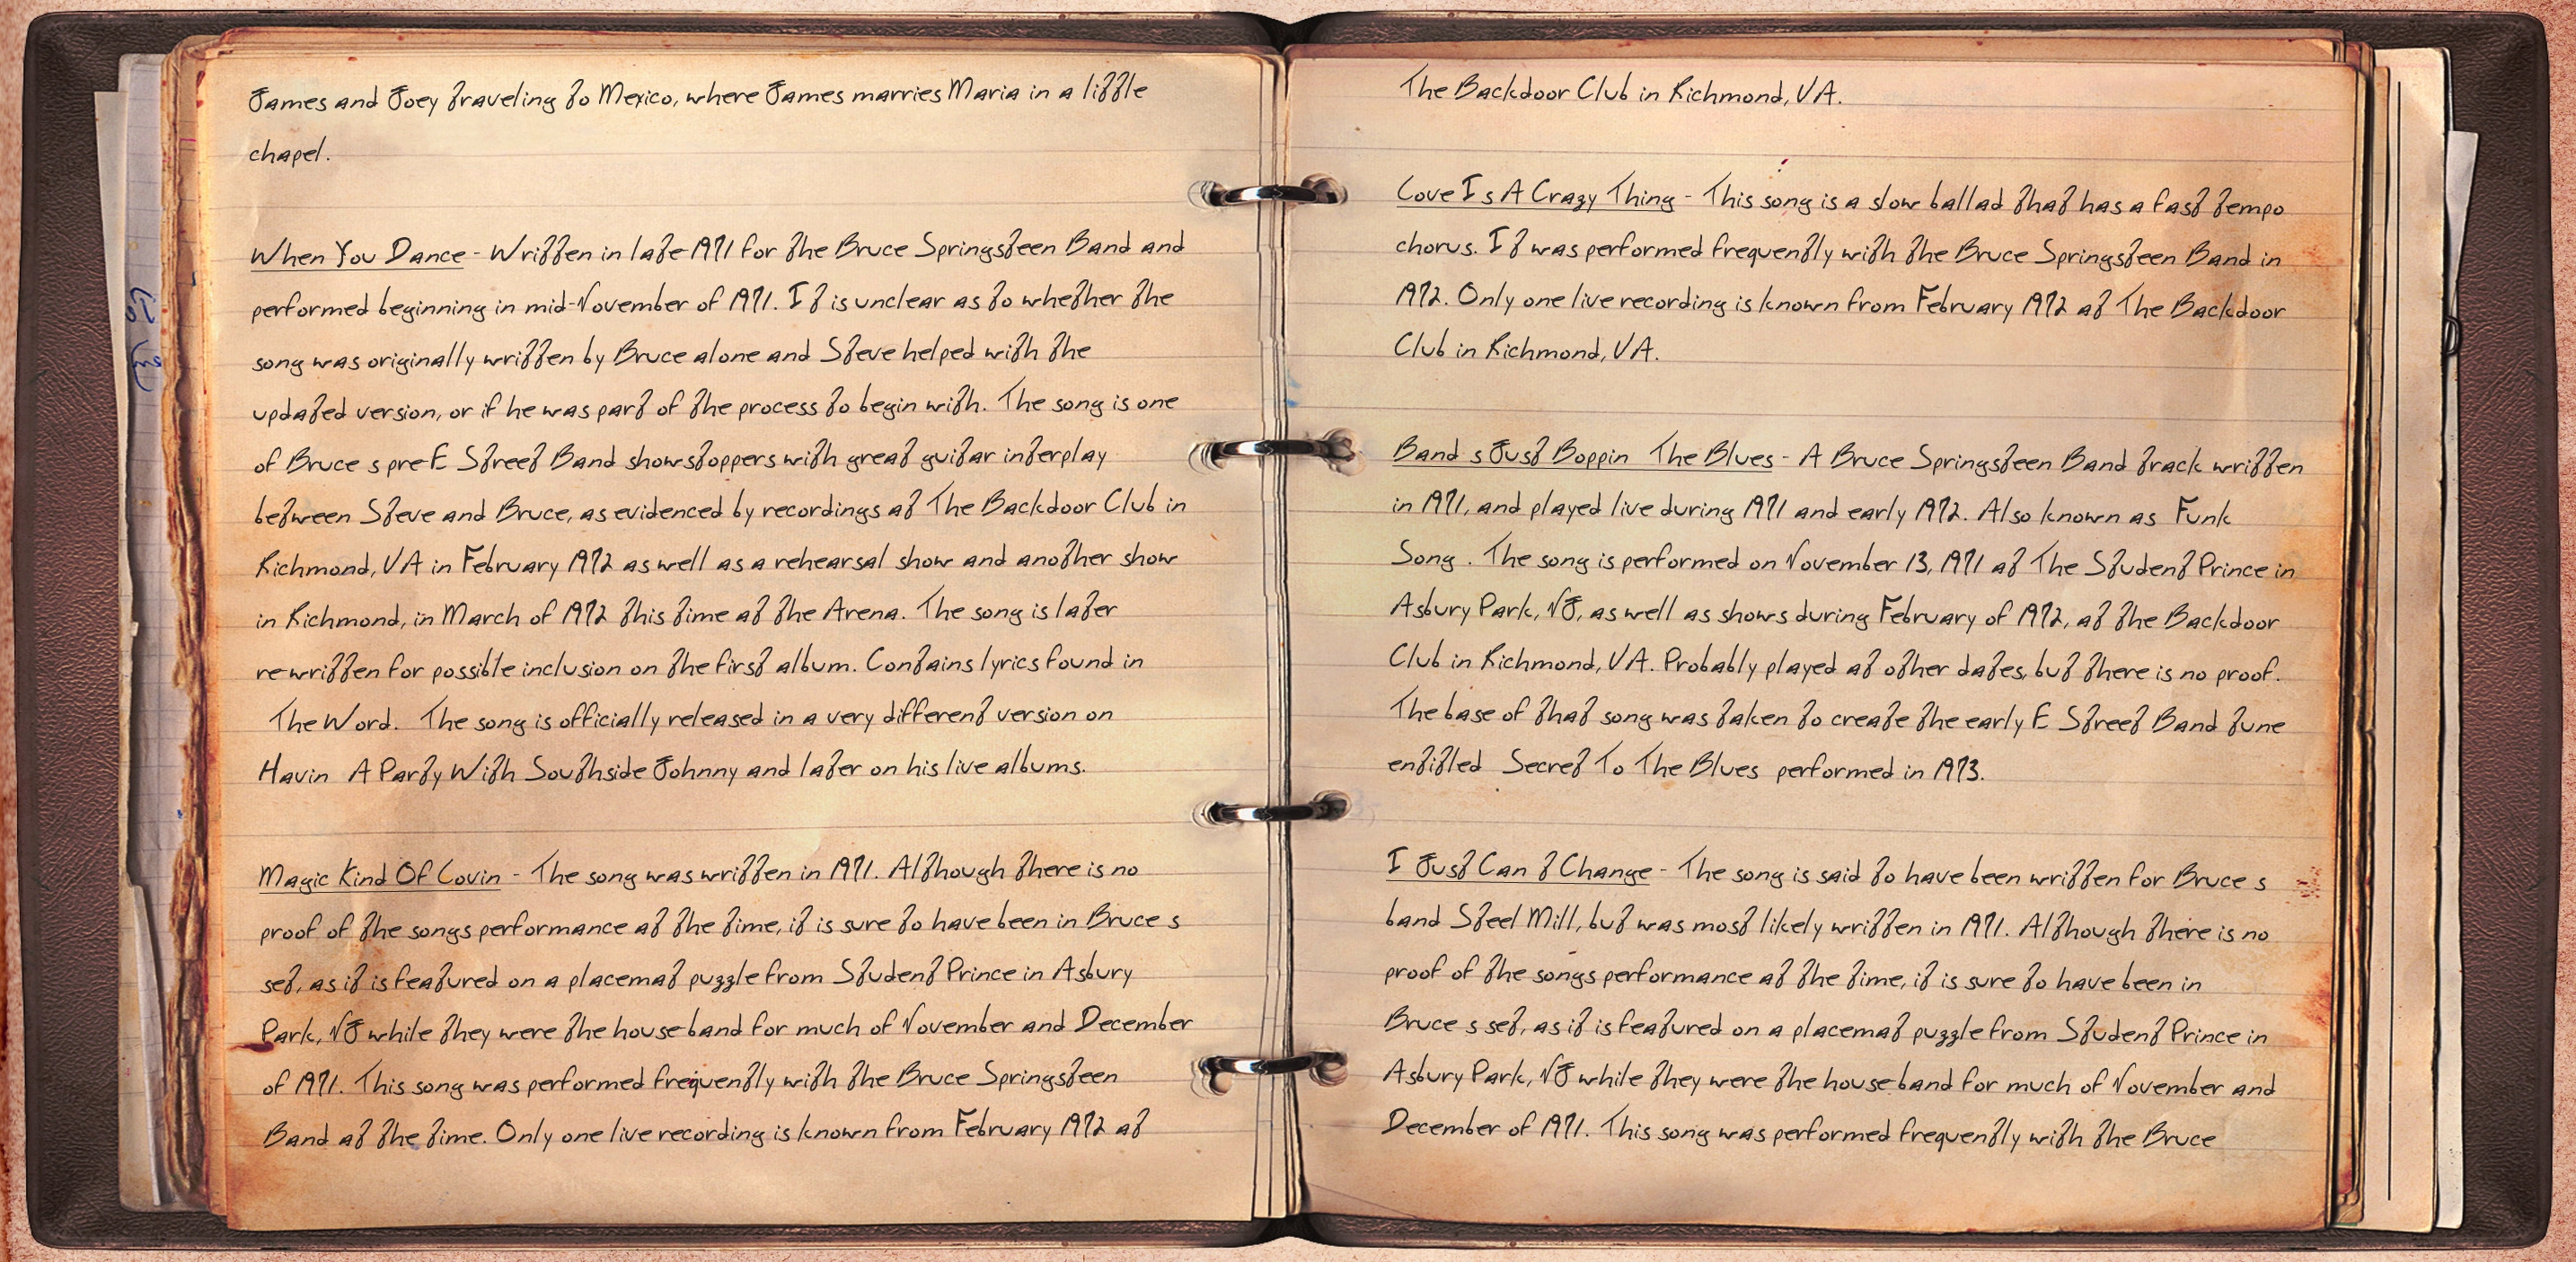 James and Joey traveling to Mexico, where James marries Maria in a little
chapel.
When You Dance - Written in late 1971 for the Bruce Springsteen Band and
performed beginning in mid-November of 1971. It is unclear as to whether the
song was originally written by Bruce alone and Steve helped with the
updated version, or if he was part of the process to begin with. The song is one
of Bruce s pre E Street Band showstoppers with great guitar interplay
between Steve and Bruce, as evidenced by recordings at The Backdoor Club in
Richmond, VA in February 1972 as well as a rehearsal show and another show
in Richmond, in March of 1972 this time at the Arena. The song is later
rewritten for possible inclusion on the first album. Contains lyrics found in
The Word. The song is officially released in a very different version on
Havin A Party With Southside Johnny and later on his live albums.
Magic Kind Of Lovin - The song was written in 1971. Although there is no
proof of the songs performance at the time, it is sure to have been in Bruce s
set, as it is featured on a placemat puzzle from Student Prince in Asbury
Park, NJ while they were the house band for much of November and December
of 1971. This song was performed frequently with the Bruce Springsteen
Band at the time. Only one live recording is known from February 1972 at
The Backdoor Club in Richmond, VA.
Love Is A Crazy Thing - This song is a slow ballad that has a fast tempo
chorus. It was performed frequently with the Bruce Springsteen Band in
1972. Only one live recording is known from February 1972 at The Backdoor
Club in Richmond, VA.
Band s Just Boppin The Blues - A Bruce Springsteen Band track written
in 1971, and played live during 1971 and early 1972. Also known as Funk
Song . The song is performed on November 13, 1971 at The Student Prince in
Asbury Park, NJ, as well as shows during February of 1972, at the Backdoor
Club in Richmond, VA. Probably played at other dates, but there is no proof.
The base of that song was taken to create the early E Street Band tune
entitled Secret To The Blues performed in 1973.
I Just Can t Change - The song is said to have been written for Bruce s
band Steel Mill, but was most likely written in 1971. Although there is no
proof of the songs performance at the time, it is sure to have been in
Bruce s set, as it is featured on a placemat puzzle from Student Prince in
Asbury Park, NJ while they were the house band for much of November and
December of 1971. This song was performed frequently with the Bruce